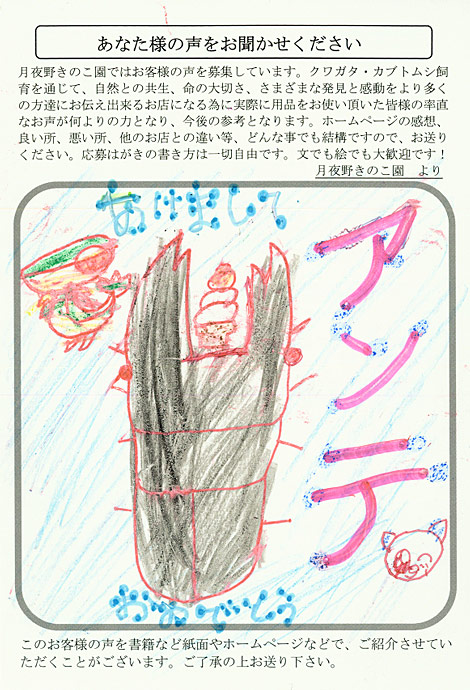 あなた様の声をお聞かせください
月夜野きのこ園ではお客様の声を募集しています。クワガタ・カブトムシ飼
育を通じて、自然との共生、命の大切さ、さまざまな発見と感動をより多く
の方達にお伝え出来るお店になる為に実際に用品をお使い頂いた皆様の率直
なお声が何よりの力となり、今後の参考となります。ホームページの感想、
良い所、悪い所、他のお店との違い等、どんな事でも結構ですので、お送り
ください。応募はがきの書き方は一切自由です。文でも絵でも大歓迎です！
月夜野きのこ園　より
あけまして
アンテ
おめでとう
このお客様の声を書籍など紙面やホームページなどで、ご紹介させてい
ただくことがございます。ご了承の上お送り下さい。